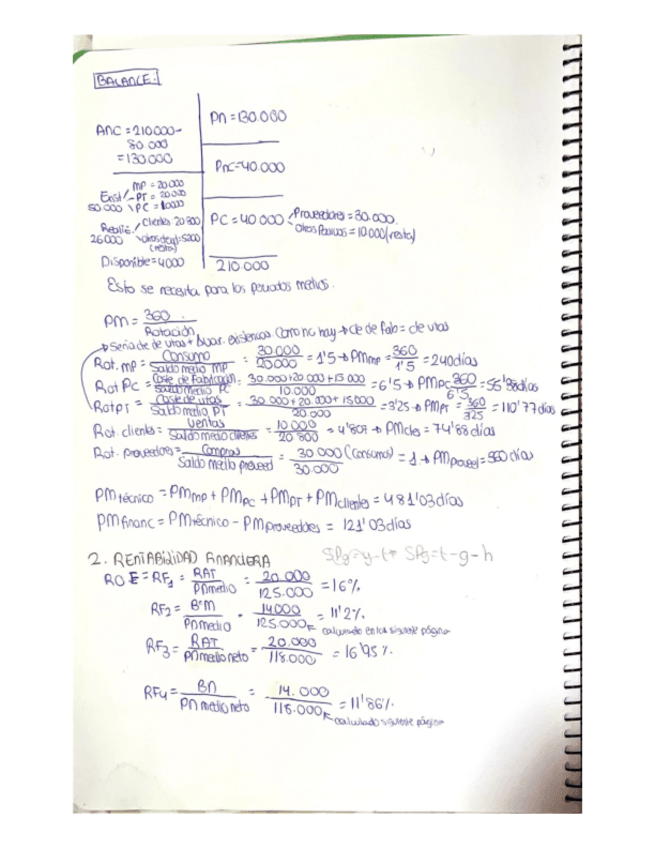 BALANCE:
PN = 130.000
ANC = 210000-
80 000
= 130000
PNC=40.000
MP = 20000
Exist - PT = 20000
50 000 PC = 10000
Realiz. Clientes 20 800
26000 otros deud: 5200
(resta)
PC = 40000 Proveedores = 30.000.
Otros Pasivos = 10 000 (resta)
Disponible = 4000
210.000
Esto se necesita para los periodos medios.
PM = 360 / Rotación
Seria cte de vtas + Δvar. existencias Como no hay → Cte de Fab = cte vtas
Rot. MP = Consumo / Saldo medio MP = 30.000 / 20000 = 1'5 → PMmp = 360 / 1'5 = 240días
Rot PC = Coste de Fabricación / Saldo medio PC = 30.000+20 000+15 000 / 10.000 = 6'5 → PMPC 360 / 6'5 = 55'38días
Rot PT = Coste de vtas / Saldo medio PT = 30 000 + 20.000 + 15000 / 20.000 = 3'25 → PMPT = 360 / 325 = 110'77 días
Rot. clientes = Ventas / Saldo medio clientes = 10 000 / 20 800 = 4'807 → PMctes = 74'88 días
Rot. proveedores = Compras / Saldo medio proveed = 30 000 (Consumos) / 30.000 = 1 → PMproveed = 360 día
PM técnico = PMmp + PMPC + PMPT + PMclientes = 481'03días
PM financ = PMtécnico - PMproveedores = 121'03días
2. RENTABILIDAD FINANCIERA
SPg=t-g-h
ROE = RF1 = RAT / PNmedio = 20.000 / 125.000 = 16%
RF2 = / PNmedio = 14000 / 125.000 = 11'2%
calculado en la siguiente página
RF3 = RAT / PN medio neto = 20.000 / 118.000 = 16'95 %
RF4 = BN / PN medio neto = 14.000 / 118.000 = 11'86%
calculado siguiente página